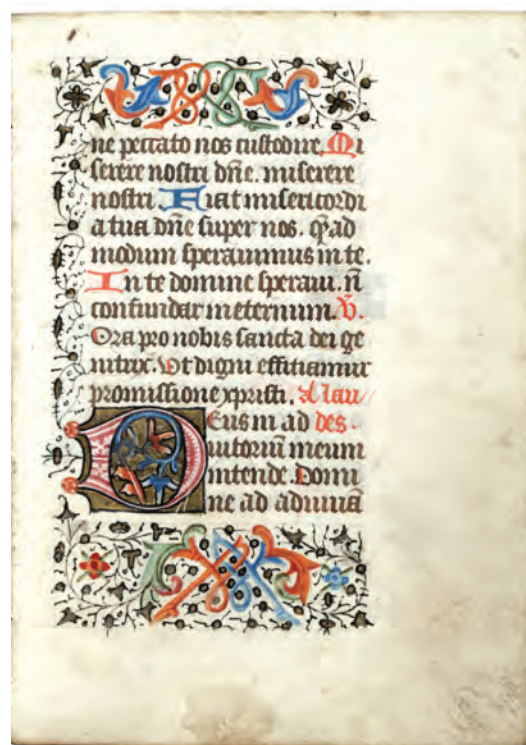 ne peccato nos custodire. Mi
serere nostri dñe. miserere
nostri. Fiat misericordi
a tua dñe super nos. q̃ad
modum sperauimus in te.
In te domine speraui. ñ
confundar in eternum. V̄.
Ora pro nobis sancta dei ge
nitrix. Vt digni efficiamur
promissione xpristi. A lau
Deus in ad des.
iutoriũ meum
intende. Domi
ne ad adiuuã